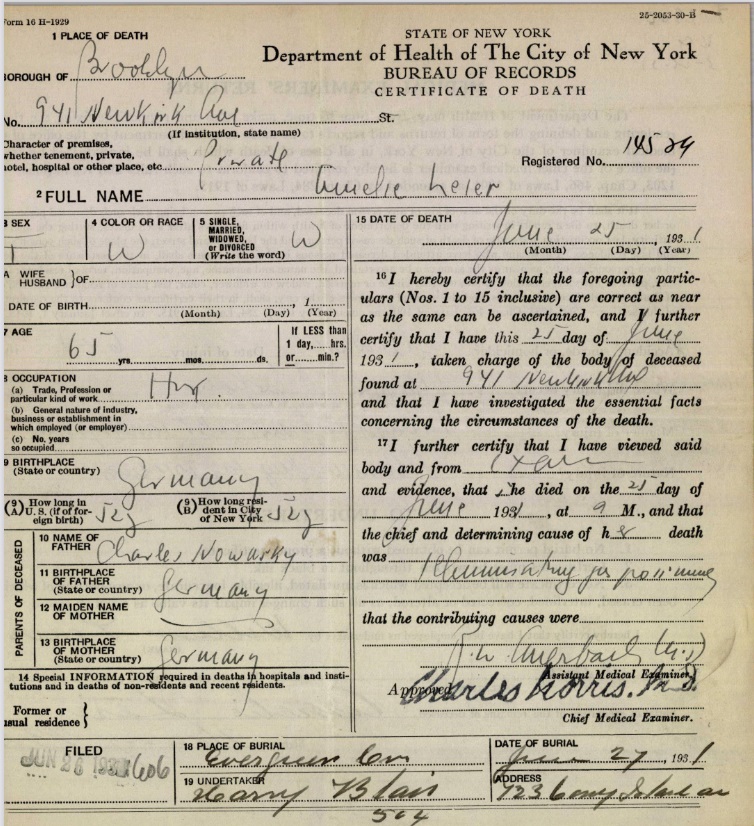 Form 16 H-1929
25-2053-30-B
1 PLACE OF DEATH
STATE OF NEW YORK
Department of Health of The City of New York
BUREAU OF RECORDS
CERTIFICATE OF DEATH
BOROUGH OF Brooklyn
No. 941 Newkirk Ave St.
(If institution, state name)
Character of premises,
whether tenement, private,
hotel, hospital or other place, etc. Private
Registered No. 14529
2 FULL NAME Amelie Leier
3 SEX F
4 COLOR OR RACE W
5 SINGLE,
MARRIED,
WIDOWED,
or DIVORCED
(Write the word) W
A WIFE
HUSBAND } OF
DATE OF BIRTH , 1
(Month) (Day) (Year)
7 AGE 65 yrs. mos. ds.
If LESS than
1 day, hrs.
or min.?
8 OCCUPATION
(a) Trade, Profession or
particular kind of work
(b) General nature of industry,
business or establishment in
which employed (or employer)
(c) No. years
so occupied
9 BIRTHPLACE
(State or country) Germany
(9)
(A) How long in
U. S. (if of for-
eign birth) 52y
(9)
(B) How long resi-
dent in City
of New York 52y
PARENTS OF DECEASED
10 NAME OF
FATHER Charles Nowasky
11 BIRTHPLACE
OF FATHER
(State or country) Germany
12 MAIDEN NAME
OF MOTHER
13 BIRTHPLACE
OF MOTHER
(State or country) Germany
14 Special INFORMATION required in deaths in hospitals and insti-
tutions and in deaths of non-residents and recent residents.
Former or
usual residence }
15 DATE OF DEATH
June 25, 1931
(Month) (Day) (Year)
16 I hereby certify that the foregoing partic-
ulars (Nos. 1 to 15 inclusive) are correct as near
as the same can be ascertained, and I further
certify that I have this 25 day of June
1931, taken charge of the body of deceased
found at 941 Newkirk Ave
and that I have investigated the essential facts
concerning the circumstances of the death.
17 I further certify that I have viewed said
body and from exam
and evidence, that she died on the 25 day of
June 1931, at 9 M., and that
the chief and determining cause of her death
was Illuminating gas poisoning
that the contributing causes were
Auerbach M.D
Assistant Medical Examiner
Approved Charles Norris. M.D.
Chief Medical Examiner.
FILED
JUN 26 1931
18 PLACE OF BURIAL
Evergreen Cem
DATE OF BURIAL
June 27, 1931
19 UNDERTAKER
Harry Blair
ADDRESS
723 Coney Island av
504